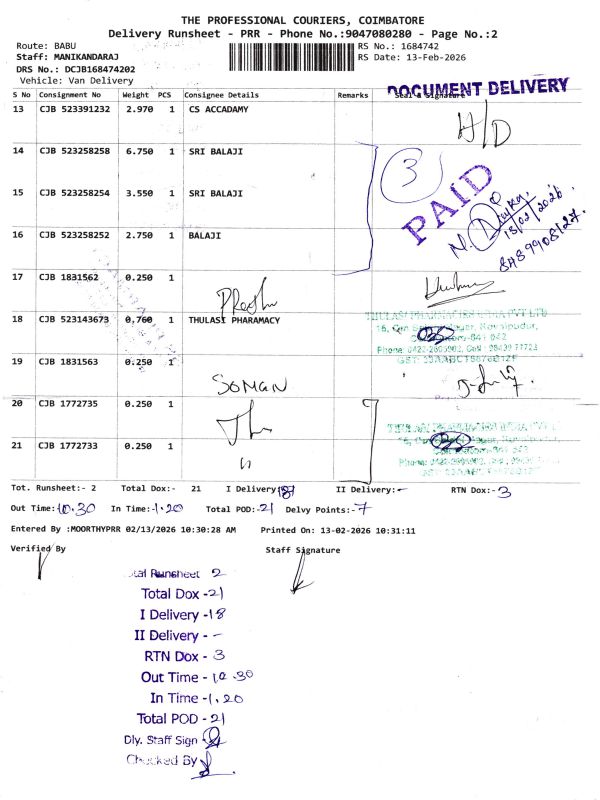 THE PROFESSIONAL COURIERS, COIMBATORE
Delivery Runsheet - PRR - Phone No.:9047080280 - Page No.:2
Route: BABU
RS No.: 1684742
Staff: MANIKANDARAJ
RS Date: 13-Feb-2026
DRS No.: DCJB168474202
Vehicle: Van Delivery
DOCUMENT DELIVERY
S No Consignment No Weight PCS Consignee Details Remarks Seal & Signature
13 CJB 523391232 2.970 1 CS ACCADAMY
A/D
14 CJB 523258258 6.750 1 SRI BALAJI
3
PAID
15 CJB 523258254 3.550 1 SRI BALAJI
13/02/2026
16 CJB 523258252 2.750 1 BALAJI
17 CJB 1831562 0.250 1
18 CJB 523143673 0.760 1 THULASI PHARAMACY
THULASI PHARMACIES INDIA PVT LTD
19 CJB 1831563 0.250 1
SOMAN
20 CJB 1772735 0.250 1
21 CJB 1772733 0.250 1
Tot. Runsheet:- 2 Total Dox:- 21 I Delivery:- 18 II Delivery:- - RTN Dox:- 3
Out Time:- 10.30 In Time:- 1.20 Total POD:- 21 Delvy Points:- 7
Entered By :MOORTHYPRR 02/13/2026 10:30:28 AM Printed On: 13-02-2026 10:31:11
Verified By Staff Signature
Total Runsheet 2
Total Dox - 21
I Delivery - 18
II Delivery - -
RTN Dox - 3
Out Time - 10.30
In Time - 1.20
Total POD - 21
Dly. Staff Sign
Checked By